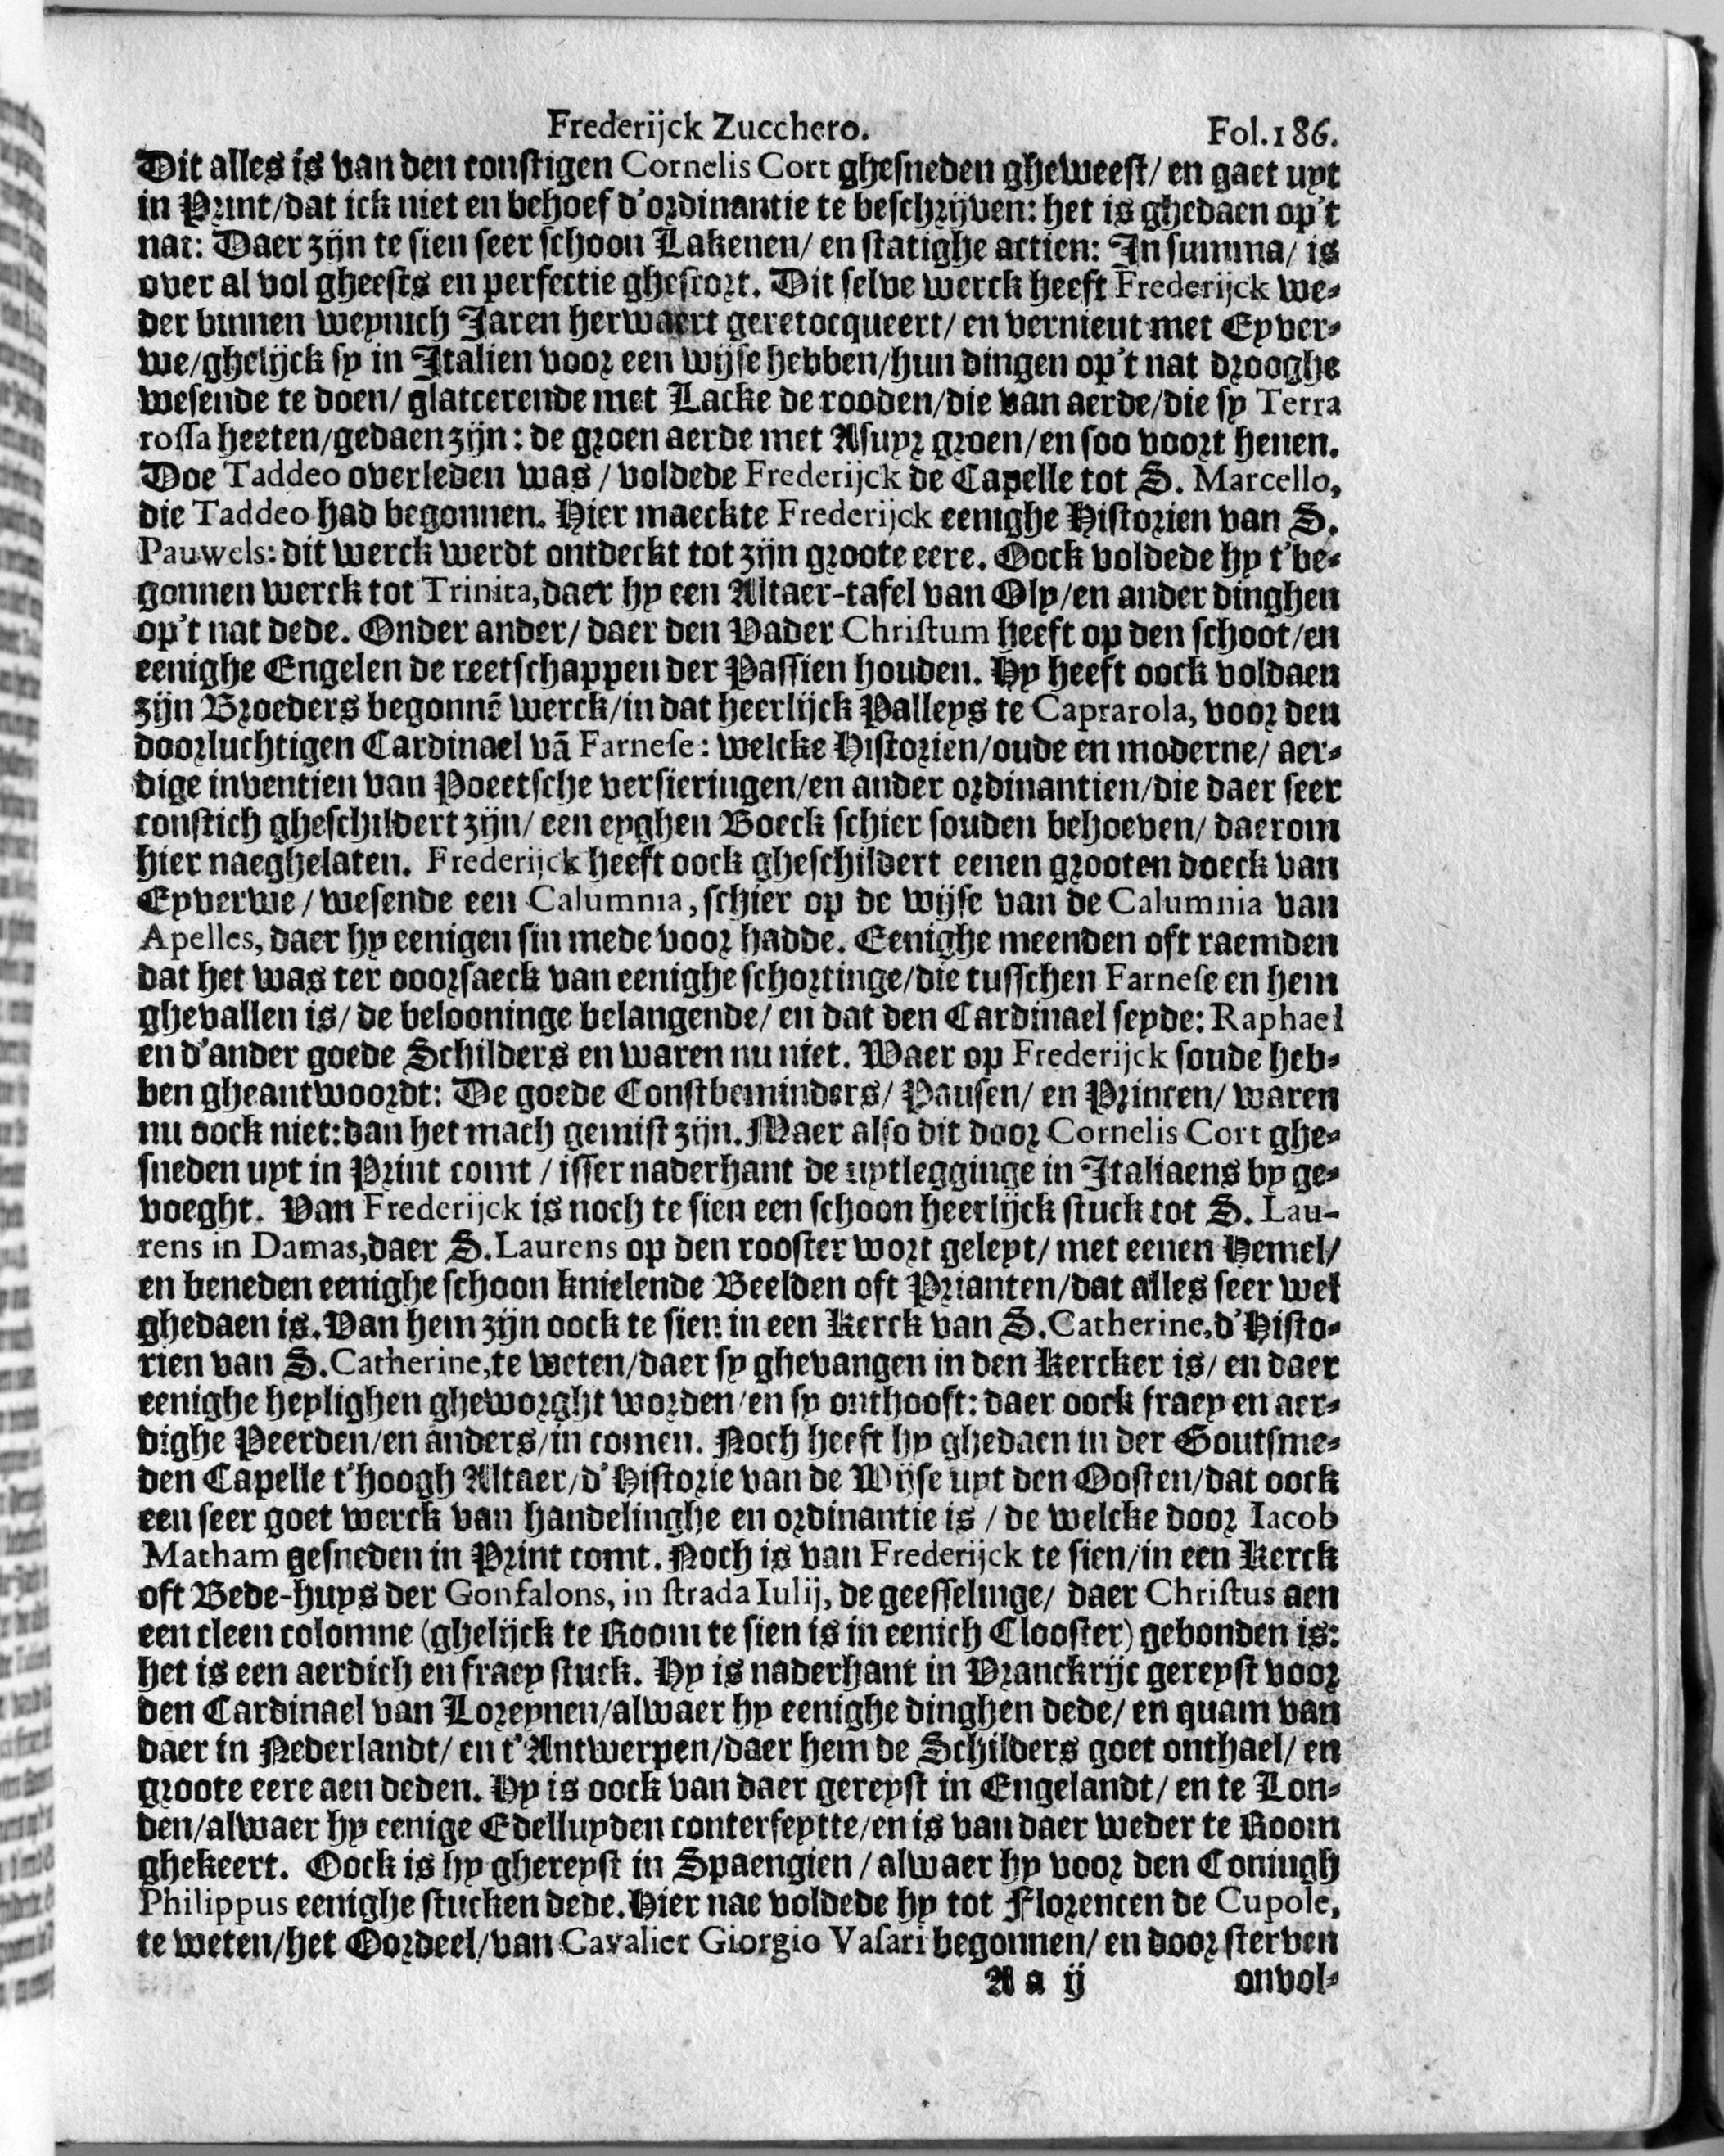 Frederijck Zucchero. Fol.186.
Dit alles is van den constigen Cornelis Cort ghesneden gheweest/ en gaet uyt
in Print/dat ick niet en behoef d'ordinantie te beschrijven: het is ghedaen op't
nat: Daer zijn te sien seer schoon Lakenen/ en statighe actien: In summa/ is
over al vol gheests en perfectie ghestort. Dit selve werck heeft Frederijck we-
der binnen weynich Jaren herwaert geretocqueert/ en vernieut met Eyver-
we/ghelijck sy in Italien voor een wijse hebben/hun dingen op't nat drooghe
wesende te doen/ glaccerende met Lacke de rooden/die van aerde/die sy Terra
rossa heeten/gedaen zijn: de groen aerde met Asuyr groen/en soo voort henen.
Doe Taddeo overleden was/ voldede Frederijck de Capelle tot S. Marcello,
die Taddeo had begonnen. Hier maeckte Frederijck eenighe Historien van S.
Pauwels: dit werck werdt ontdeckt tot zijn groote eere. Oock voldede hy t'be-
gonnen werck tot Trinita,daer hy een Altaer-tafel van Oly/en ander dinghen
op't nat dede. Onder ander/ daer den Vader Christum heeft op den schoot/en
eenighe Engelen de reetschappen der Passien houden. Hy heeft oock voldaen
zijn Broeders begonnē werck/in dat heerlijck Palleys te Caprarola, voor den
doorluchtigen Cardinael vā Farnese: welcke Historien/oude en moderne/ aer-
dige inventien van Poeetsche versieringen/en ander ordinantien/die daer seer
constich gheschildert zijn/ een eyghen Boeck schier souden behoeven/ daerom
hier naeghelaten. Frederijck heeft oock gheschildert eenen grooten doeck van
Eyverwe/ wesende een Calumnia, schier op de wijse van de Calumnia van
Apelles, daer hy eenigen sin mede voor hadde. Eenighe meenden oft raemden
dat het was ter ooorsaeck van eenighe schortinge/die tusschen Farnese en hem
ghevallen is/ de belooninge belangende/ en dat den Cardinael seyde: Raphael
en d'ander goede Schilders en waren nu niet. Waer op Frederijck soude heb-
ben gheantwoordt: De goede Constbeminders/ Pausen/ en Princen/ waren
nu oock niet: dan het mach gemist zijn. Maer also dit door Cornelis Cort ghe-
sneden uyt in Print comt/ isser naderhant de uytlegginge in Italiaens by ge-
voeght. Van Frederijck is noch te sien een schoon heerlijck stuck tot S. Lau-
rens in Damas,daer S.Laurens op den rooster wort geleyt/ met eenen Hemel/
en beneden eenighe schoon knielende Beelden oft Prianten/dat alles seer wel
ghedaen is. Van hem zijn oock te sien in een Kerck van S.Catherine,d'Histo-
rien van S.Catherine,te weten/daer sy ghevangen in den Kercker is/ en daer
eenighe heylighen gheworght worden/en sy onthooft: daer oock fraey en aer-
dighe Peerden/en anders/in comen. Noch heeft hy ghedaen in der Goutsme-
den Capelle t'hoogh Altaer/d'Historie van de Wijse uyt den Oosten/dat oock
een seer goet werck van handelinghe en ordinantie is/ de welcke door Iacob
Matham gesneden in Print comt. Noch is van Frederijck te sien/in een Kerck
oft Bede-huys der Gonfalons, in strada Iulij, de geesselinge/ daer Christus aen
een cleen colomne (ghelijck te Room te sien is in eenich Clooster) gebonden is:
het is een aerdich en fraey stuck. Hy is naderhant in Vranckrijc gereyst voor
den Cardinael van Loreynen/alwaer hy eenighe dinghen dede/ en quam van
daer in Nederlandt/ en t'Antwerpen/daer hem de Schilders goet onthael/ en
groote eere aen deden. Hy is oock van daer gereyst in Engelandt/ en te Lon-
den/alwaer hy eenige Edelluyden conterfeytte/en is van daer weder te Room
ghekeert. Oock is hy ghereyst in Spaengien/ alwaer hy voor den Coningh
Philippus eenighe stucken dede. Hier nae voldede hy tot Florencen de Cupole,
te weten/het Oordeel/van Cavalier Giorgio Vasari begonnen/ en door sterven
A a ij onvol-